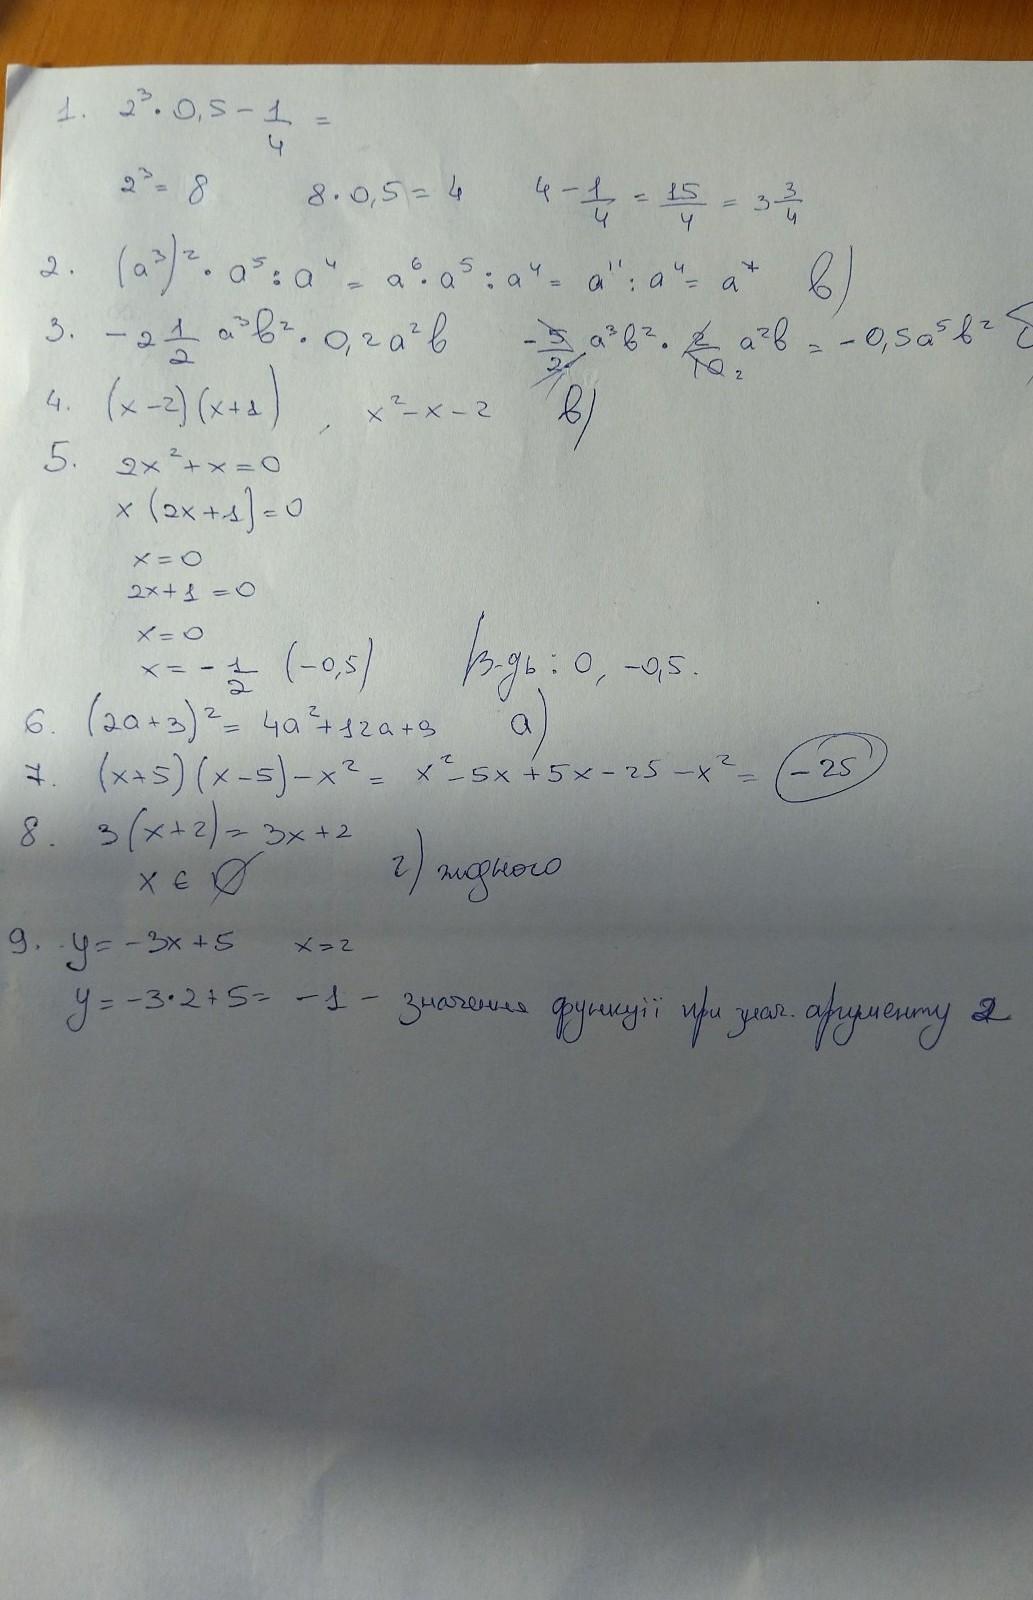 1. 2³ · 0,5 - 1/4 =
2³ = 8 8 · 0,5 = 4 4 - 1/4 = 15/4 = 3 3/4
2. (a³)² · a⁵ : a⁴ = a⁶ · a⁵ : a⁴ = a¹¹ : a⁴ = a⁷ в)
3. -2 1/2 a³b² · 0,2a²b -5/2 a³b² · 2/10 2 a²b = -0,5a⁵b²
4. (x-2)(x+1), x²-x-2 в)
5. 2x²+x=0
x(2x+1)=0
x=0
2x+1=0
x=0
x=-1/2 (-0,5) В-дь: 0, -0,5.
6. (2a+3)² = 4a²+12a+9 а)
7. (x+5)(x-5)-x² = x²-5x+5x-25-x² = -25
8. 3(x+2)=3x+2
x ∈ ∅ г) жодного
9. y=-3x+5 x=2
y=-3·2+5=-1 - значення функції при знач. аргументу 2